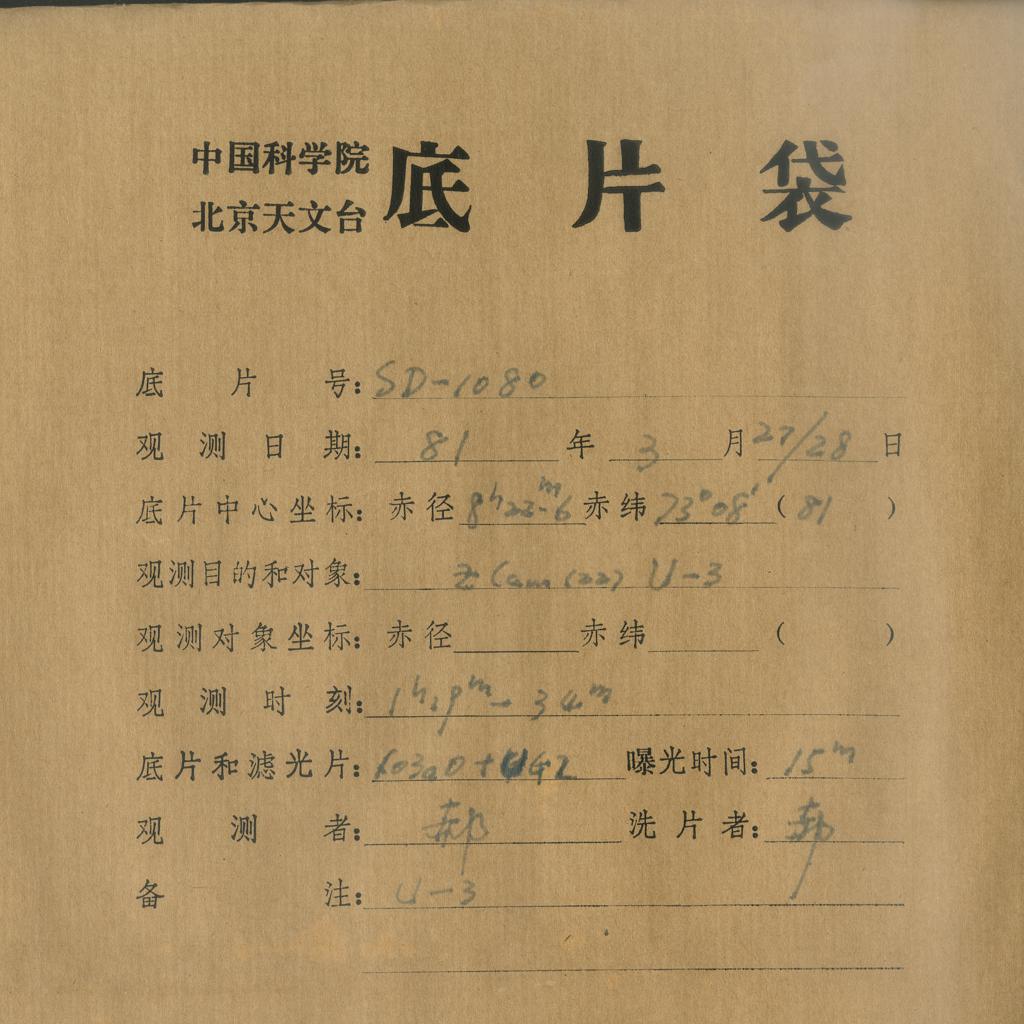 中国科学院
北京天文台
底片袋
底片号: SD-1080
观测日期: 81 年 3 月 27/28 日
底片中心坐标: 赤径 8h22m.6 赤纬 73°08′ ( 81 )
观测目的和对象: Z Cam (22) U-3
观测对象坐标: 赤径 赤纬 ( )
观测时刻: 1h19m-34m
底片和滤光片: 103aO+UG2 曝光时间: 15m
观测者: 郝 洗片者: 郝
备注: U-3